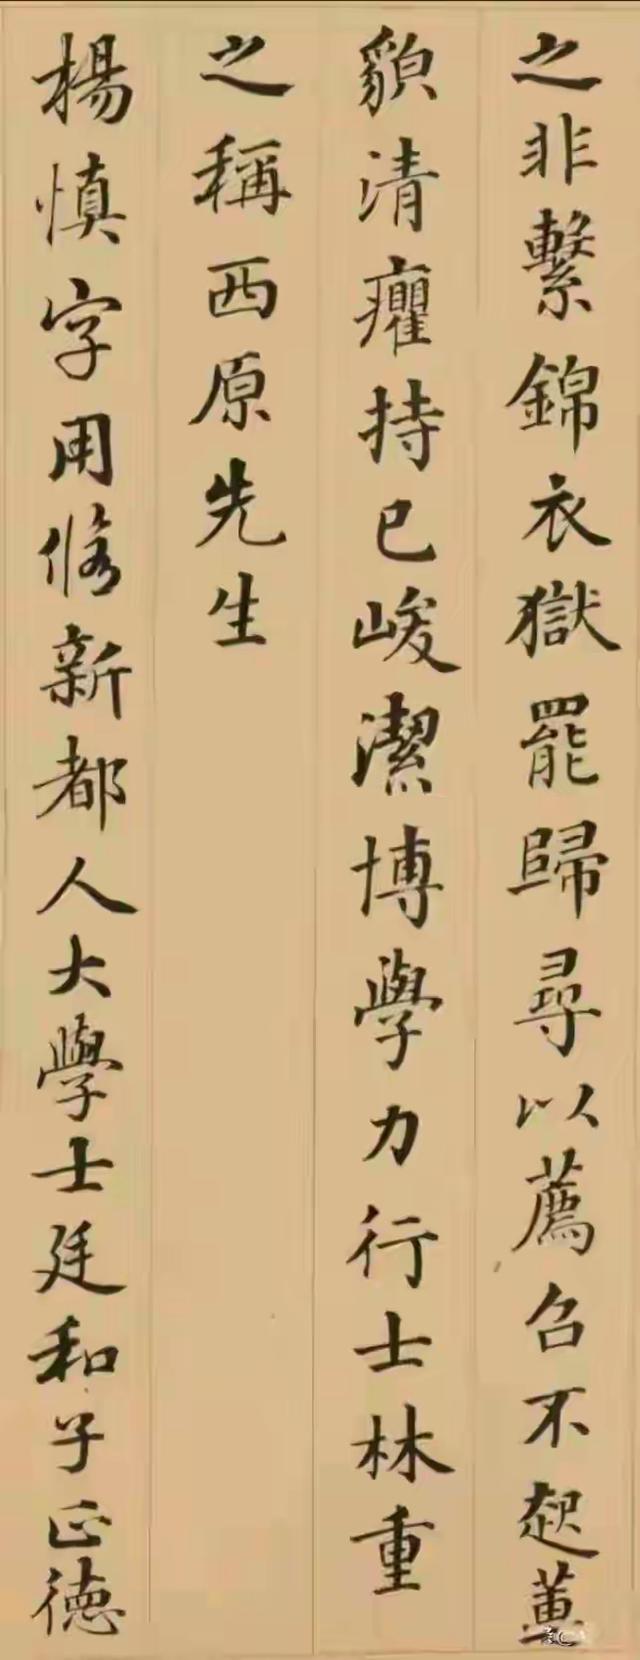 之非繫錦衣獄罷歸尋以薦召不起蕙
貌清癯持已峻潔博學力行士林重
之稱西原先生
楊慎字用修新都人大學士廷和子正德